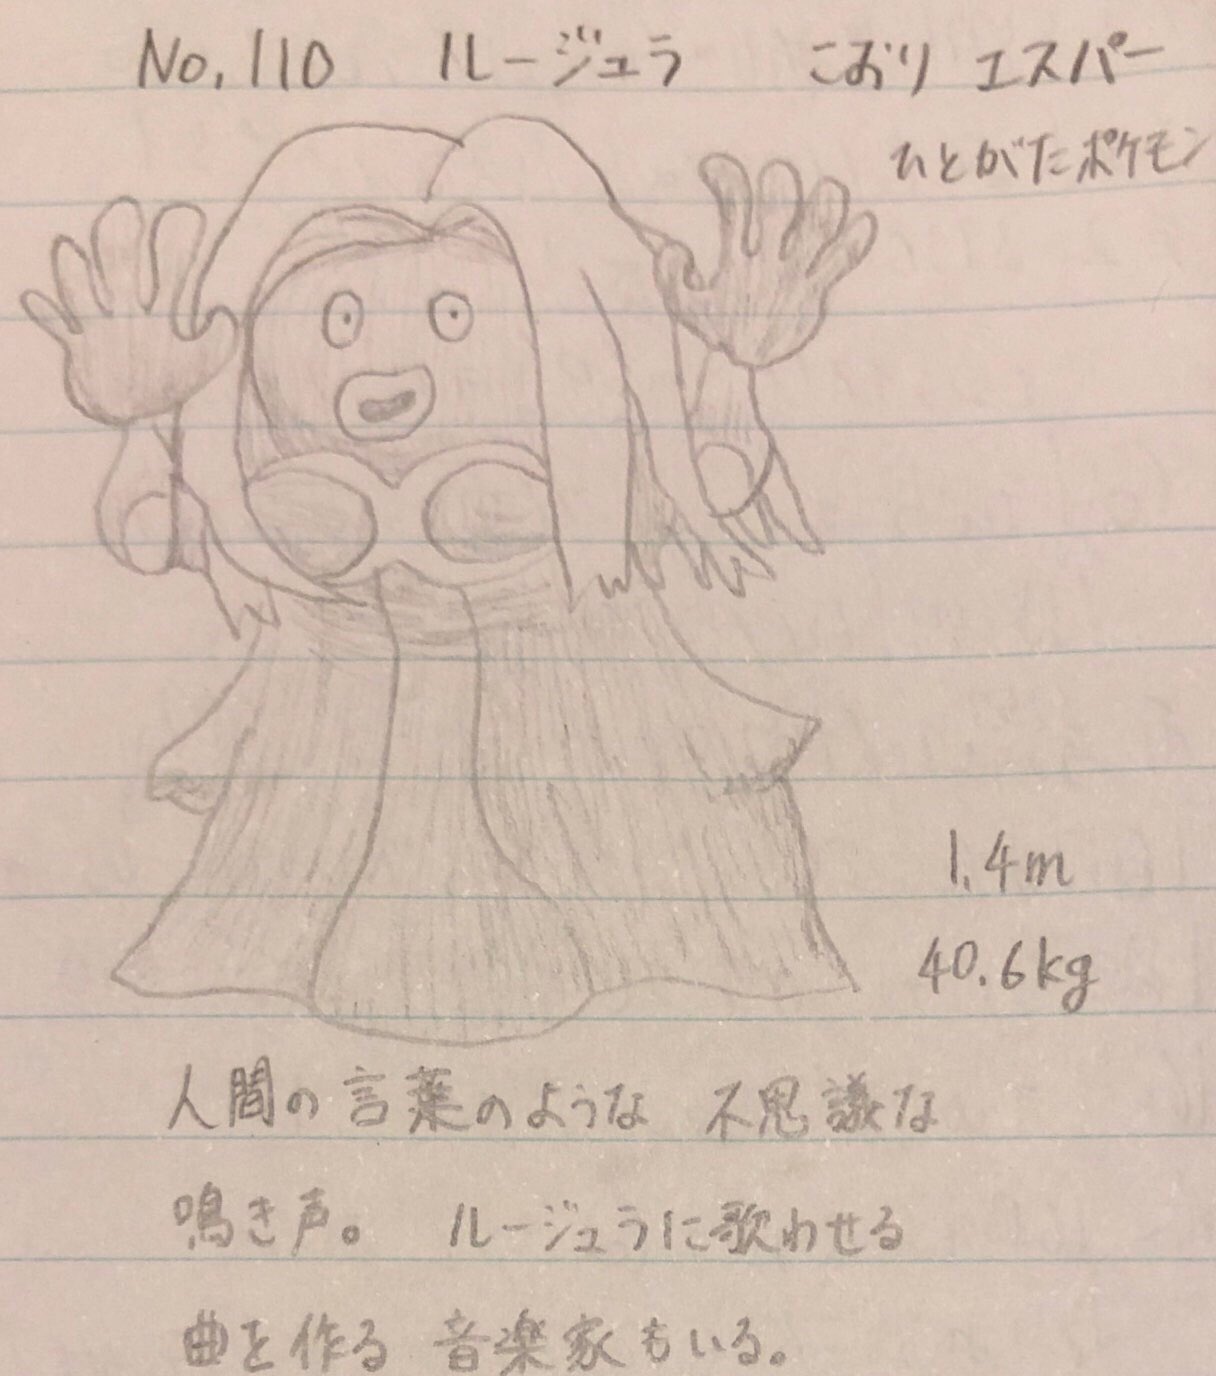 No.110 ルージュラ こおり エスパー
ひとがたポケモン
1.4m
40.6kg
人間の言葉のような 不思議な
鳴き声。 ルージュラに歌わせる
曲を作る 音楽家もいる。